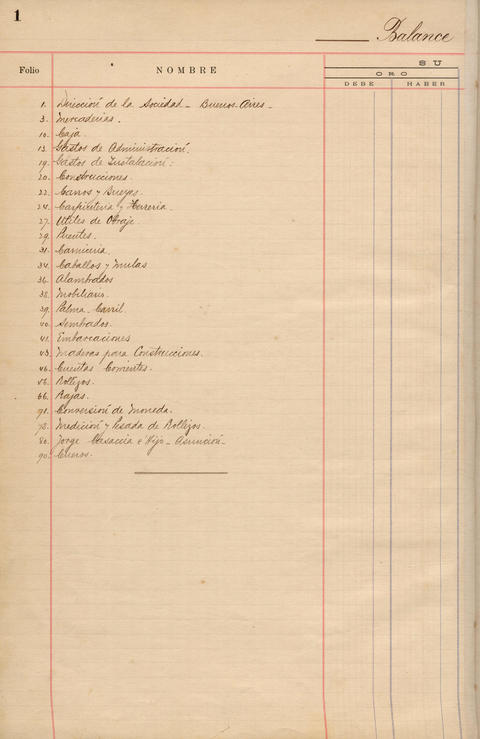 1
Balance
SU
Folio NOMBRE ORO
DEBE HABER
1. Direccion de la Sociedad - Buenos-Aires -
3. Mercaderias.
10. Caja.
13. Gastos de Administracion.
19. Gastos de Instalacion:
20. Construcciones.
22. Carros y Bueyes.
24. Carpinteria y Herreria.
27. Utiles de Obraje.
29. Puentes.
31. Carniceria.
34. Caballos y Mulas
36. Alambrados
38. Mobiliario.
39. Palma Carril.
40. Sembrados.
41. Embarcaciones
43. Maderas para Construcciones.
46. Cuentas Corrientes.
Rollizos.
66. Rajas.
Conversion de Moneda.
Medicion y Pesada de Rollizos.
80. Jorge Casaccia e Hijo - Asuncion -
90. Cueros.